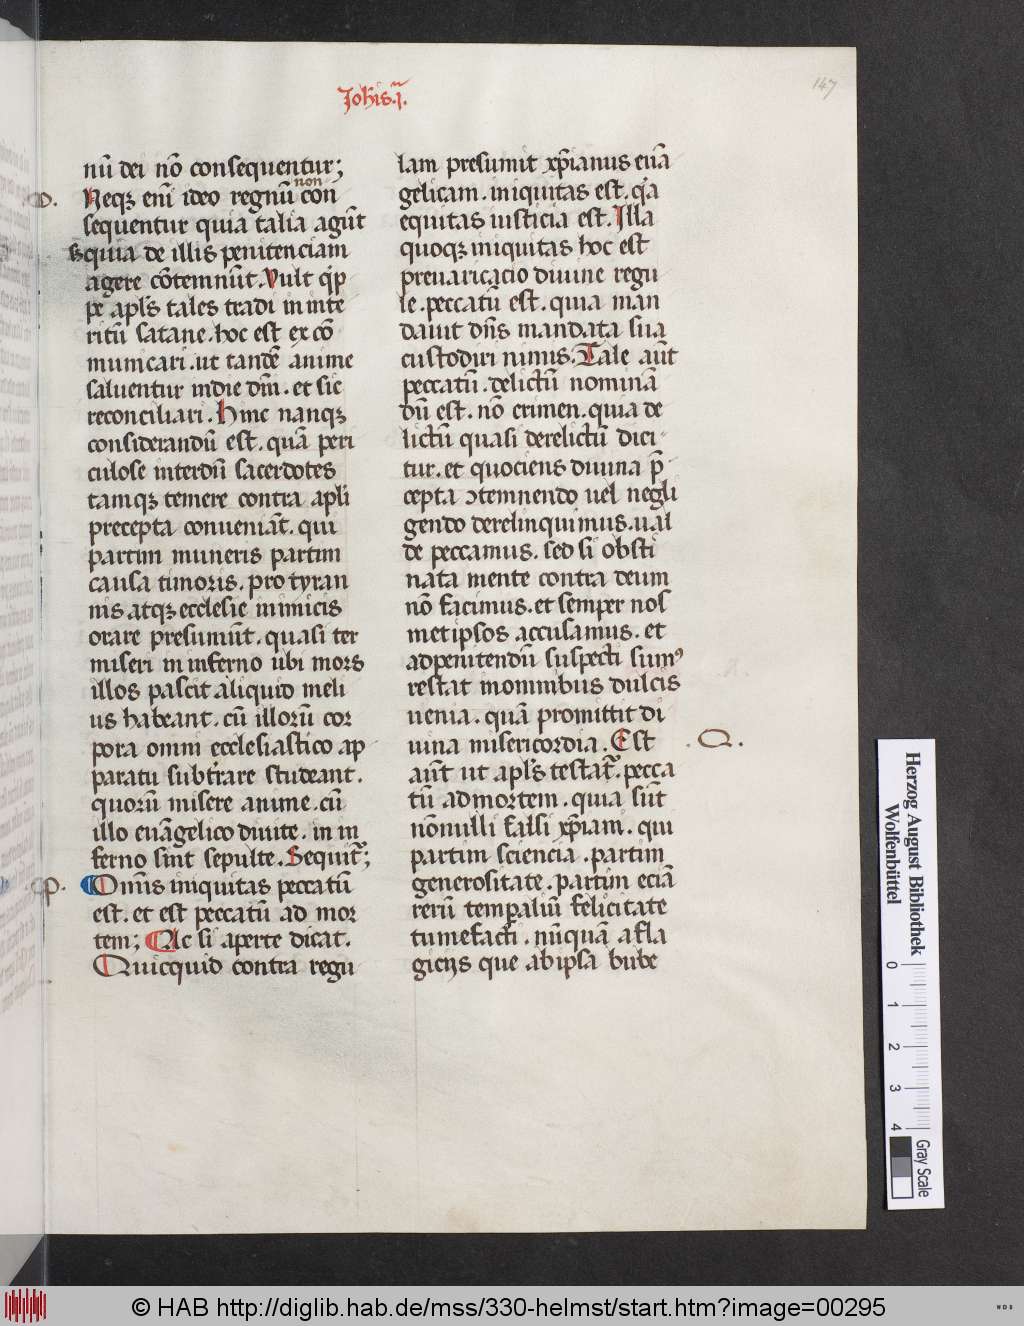 Joh̅is .i̅.
147
nu̅ dei no̅ consequentur;
Neqꝫ eni̅ ideo regnu̅ non con
sequentur quia talia agu̅t
sꝫ quia de illis penitenciam
agere co̅temnu̅t. Vult q̇p
pe apl̅s tales tradi in inte
ritu̅ satane. hoc est ex co̅
municari. ut tande̅ anime
saluentur in die dn̅i. et sic
reconciliari. Hinc nanqꝫ
considerandu̅ est. qua̅ peri
culose interdu̅ sacerdotes
tamqꝫ temere contra apl̅i
precepta conuenia̅t. qui
partim muneris partim
causa timoris. pro tyran
nis atqꝫ ecclesie inimicis
orare presumu̅t. quasi ter
miseri in inferno ubi mors
illos pascit aliquid meli
us habeant. cu̅ illoru̅ cor
pora omni ecclesiastico ap
paratu subt̓rare studeant.
quoru̅ misere anime. cu̅
illo eua̅gelico diuite. in in
ferno sint sepulte. Sequit᷑;
.p.
Om̅is iniquitas peccatu̅
est. et est peccatu̅ ad mor
tem; Ac si aperte dicat.
Quicquid contra regu
lam presumit xp̅ianus eua̅
gelicam. iniquitas est. q̇a
equitas iusticia est. Illa
quoqꝫ iniquitas hoc est
preuaricacio diuine regu
le. peccatu̅ est. quia man
dauit dn̅s mandata sua
custodiri nimis. Tale au̅t
peccatu̅. delictu̅ nomina̅
du̅ est. no̅ crimen. quia de
lictu̅ quasi derelictu̅ dici
tur. et quociens diuina p̅
cepta ↄtemnendo uel negli
gendo derelinquimus. ual
de peccamus. sed si obsti
nata mente contra deum
no̅ facimus. et semper nos
metipsos accusamus. et
ad penitendu̅ suspecti sumꝰ
restat in omnibus dulcis
uenia. qua̅ promittit di
uina misericordia. Est
.Q.
au̅t ut apl̅s testat᷑. pecca
tu̅ ad mortem. quia su̅t
no̅nulli falsi xp̅iani. qui
partim sciencia. partim
generositate. partim ecia̅
reru̅ temp̲aliu̅ felicitate
tumefacti. nu̅qua̅ a fla
giciis que ab ipsa pube
Herzog August Bibliothek
Wolfenbüttel
0 1 2 3 4
Gray Scale
© HAB http://diglib.hab.de/mss/330-helmst/start.htm?image=00295